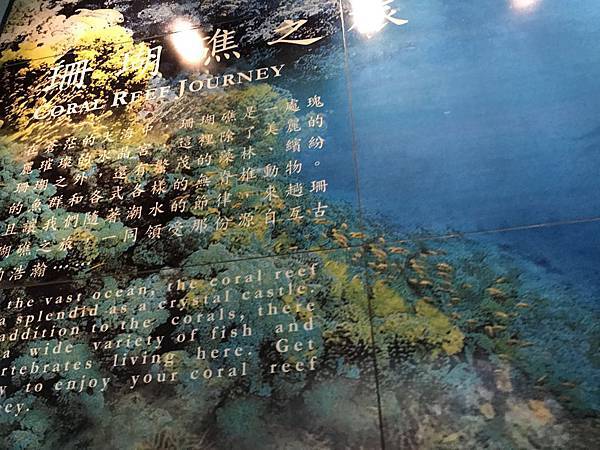 珊瑚礁之旅
CORAL REEF JOURNEY
在蒼茫的大海中，珊瑚礁是一處瑰
麗璀璨的水晶宮。這裡除了美麗的
珊瑚之外，還有繁茂的深林，繽紛
的魚群和各式各樣的無脊椎動物。
且讓我們隨著潮水的節律，來趟珊
瑚礁之旅，一同領受那份源自亙古
的浩瀚…
the vast ocean, the coral reef
a splendid as a crystal castle.
addition to the corals, there
a wide variety of fish and
ertebrates living here. Get
y to enjoy your coral reef
ey.